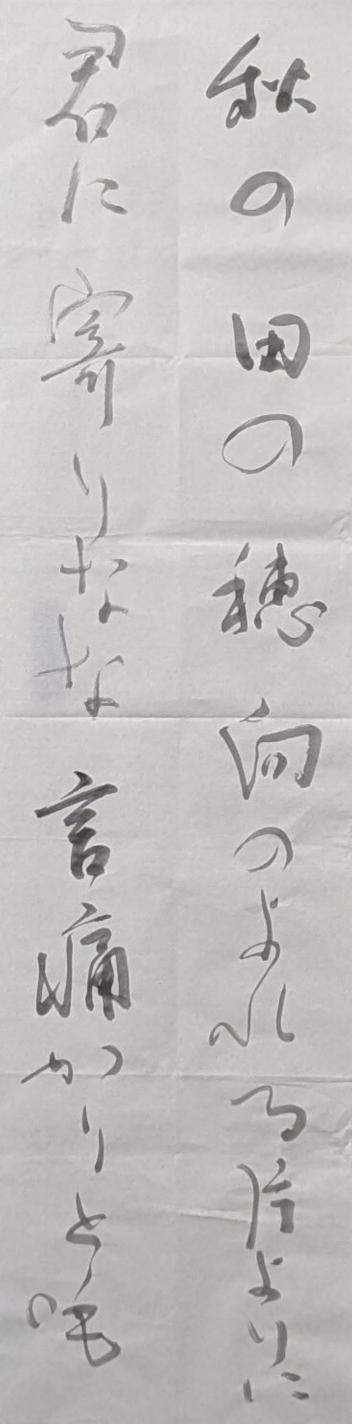 秋の田の穂向のよれる片よりに
君に寄りなな言痛かりとも